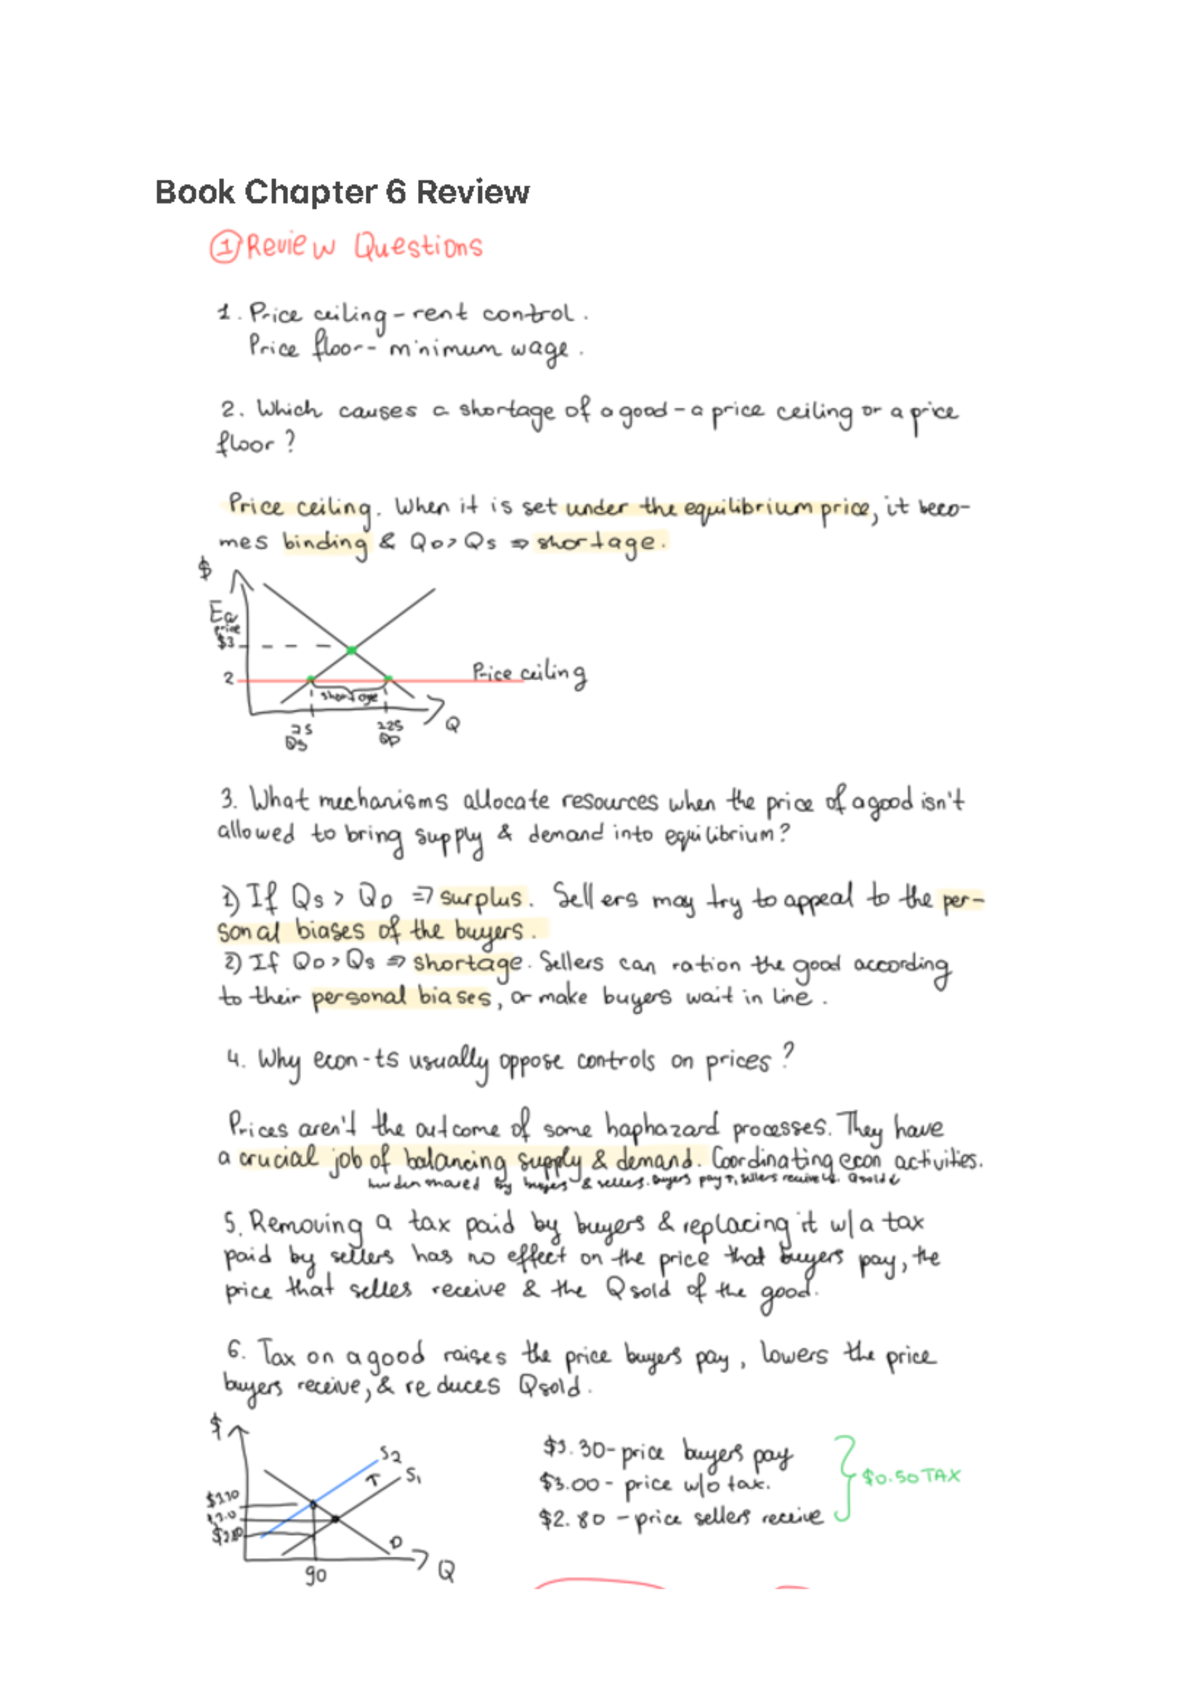 Book Chapter 6 Review
① Review Questions
1. Price ceiling – rent control.
Price floor – minimum wage.
2. Which causes a shortage of a good – a price ceiling or a price
floor?
Price ceiling. When it is set under the equilibrium price, it beco-
mes binding & QD > QS ⇒ shortage.
$
Eq
price
$3
2
Price ceiling
shortage
Q
75
QS
125
QD
3. What mechanisms allocate resources when the price of a good isn't
allowed to bring supply & demand into equilibrium?
1) If QS > QD ⇒ surplus. Sellers may try to appeal to the per-
sonal biases of the buyers.
2) If QD > QS ⇒ shortage. Sellers can ration the good according
to their personal biases, or make buyers wait in line.
4. Why econ-ts usually oppose controls on prices?
Prices aren't the outcome of some haphazard processes. They have
a crucial job of balancing supply & demand. Coordinating econ activities.
burden shared by buyers & sellers. buyers pay ↑, sellers receive ↓. Q sold ↓
5. Removing a tax paid by buyers & replacing it w/ a tax
paid by sellers has no effect on the price that buyers pay, the
price that selles receive & the Q sold of the good.
6. Tax on a good raises the price buyers pay, lowers the price
buyers receive, & reduces Q sold.
$
S2
S1
$3.30
$3.0
$2.80
D
90
Q
$3.30 – price buyers pay
$3.00 – price w/o tax.
$2.80 – price sellers receive
$0.50 TAX